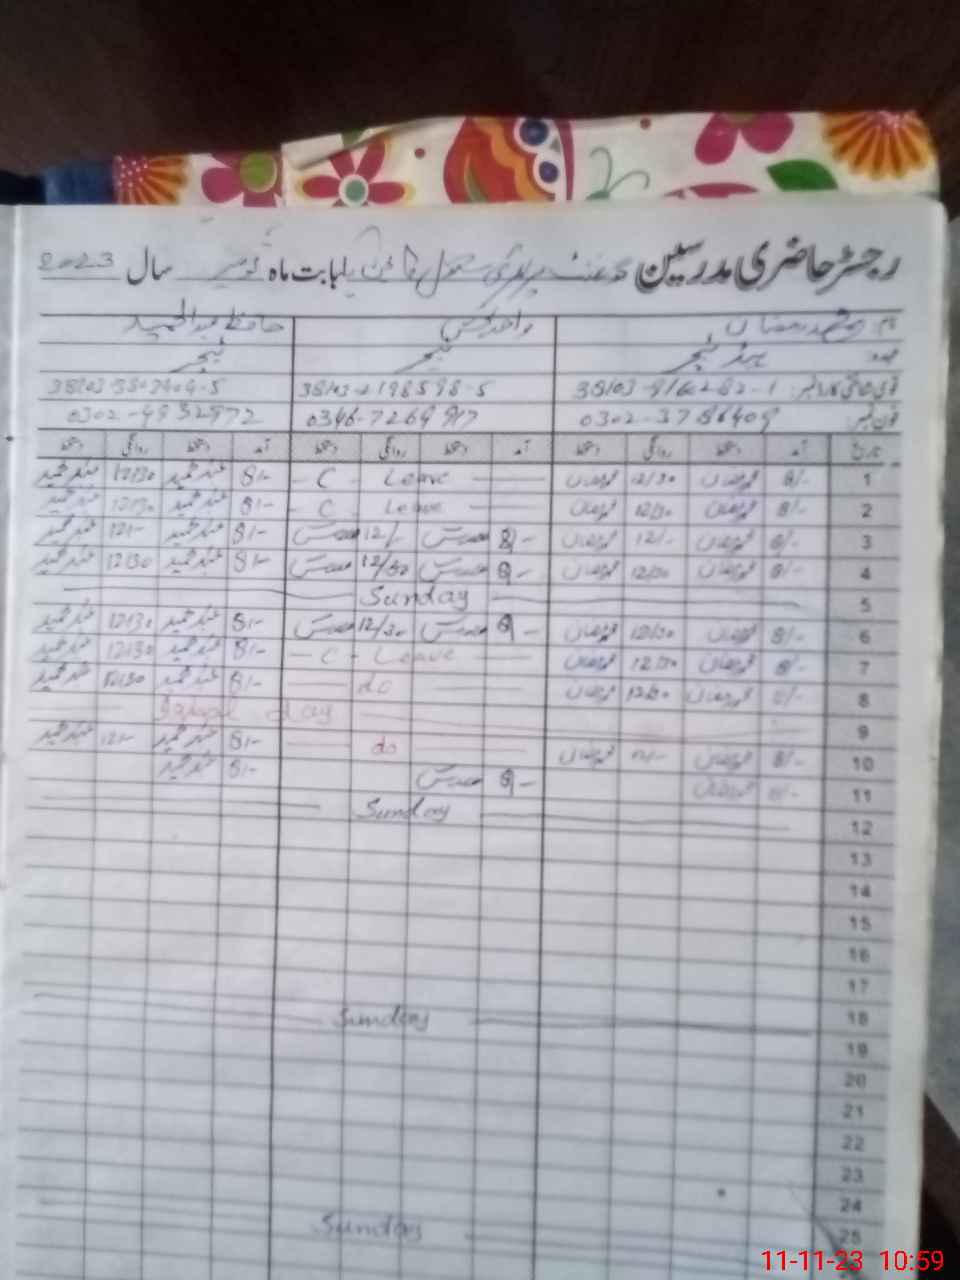 رجسٹر حاضری مدرسین گورنمنٹ پرائمری سکول بابت ماہ نومبر سال 2023
نام: محمد رمضان واحد بخش حافظ عبدالحمید
عہدہ ہیڈ ٹیچر ٹیچر ٹیچر
قومی شناختی کارڈ نمبر: 38103-9166282-1 38103-2198598-5
فون نمبر: 0302-3786409 0346-7269917 0302-4932972
تاریخ آمد دستخط روانگی دستخط آمد دستخط روانگی دستخط آمد دستخط روانگی دستخط
1 8/- محمد رمضان 12/30 محمد رمضان C - Leave 8/- عبدالحمید 12/30 عبدالحمید
2 8/- محمد رمضان 12/30 محمد رمضان C - Leave 8/- عبدالحمید 12/30 عبدالحمید
3 8/- محمد رمضان 12/- محمد رمضان 8/- 12/- 8/- عبدالحمید 12/- عبدالحمید
4 8/- محمد رمضان 12/30 محمد رمضان 8/- 12/30 8/- عبدالحمید 12/30 عبدالحمید
5 Sunday
6 8/- محمد رمضان 12/30 محمد رمضان 8/- 12/30 8/- عبدالحمید 12/30 عبدالحمید
7 8/- محمد رمضان 12/30 محمد رمضان C - Leave 8/- عبدالحمید 12/30 عبدالحمید
8 8/- محمد رمضان 12/30 محمد رمضان do 8/- عبدالحمید 12/30 عبدالحمید
9 Iqbal day
10 8/- محمد رمضان 12/- محمد رمضان do 8/- عبدالحمید 12/- عبدالحمید
11 8/- محمد رمضان 8/- 8/- عبدالحمید
12 Sunday
13
14
15
16
17
18 Sunday
19
20
21
22
23
24
25 Sunday
11-11-23 10:59